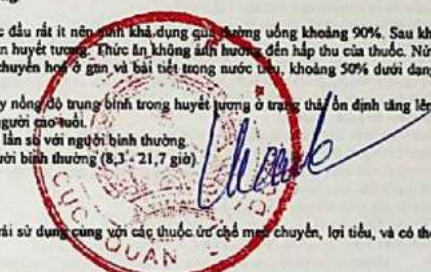 c đầu rất ít nên sinh khả dụng qua đường uống khoảng 90%. Sau kh
n huyết tương. Thức ăn không ảnh hưởng đến hấp thu của thuốc. Nử
chuyển hoá ở gan và bài tiết trong nước tiểu, khoảng 50% dưới dạng
y nồng độ trung bình trong huyết tương ở trạng thái ổn định tăng lên
người cao tuổi.
lần so với người bình thường.
ười bình thường (8,3 - 21,7 giờ).
rái sử dụng cùng với các thuốc ức chế men chuyển, lợi tiểu, và có th
CỤC QUẢN